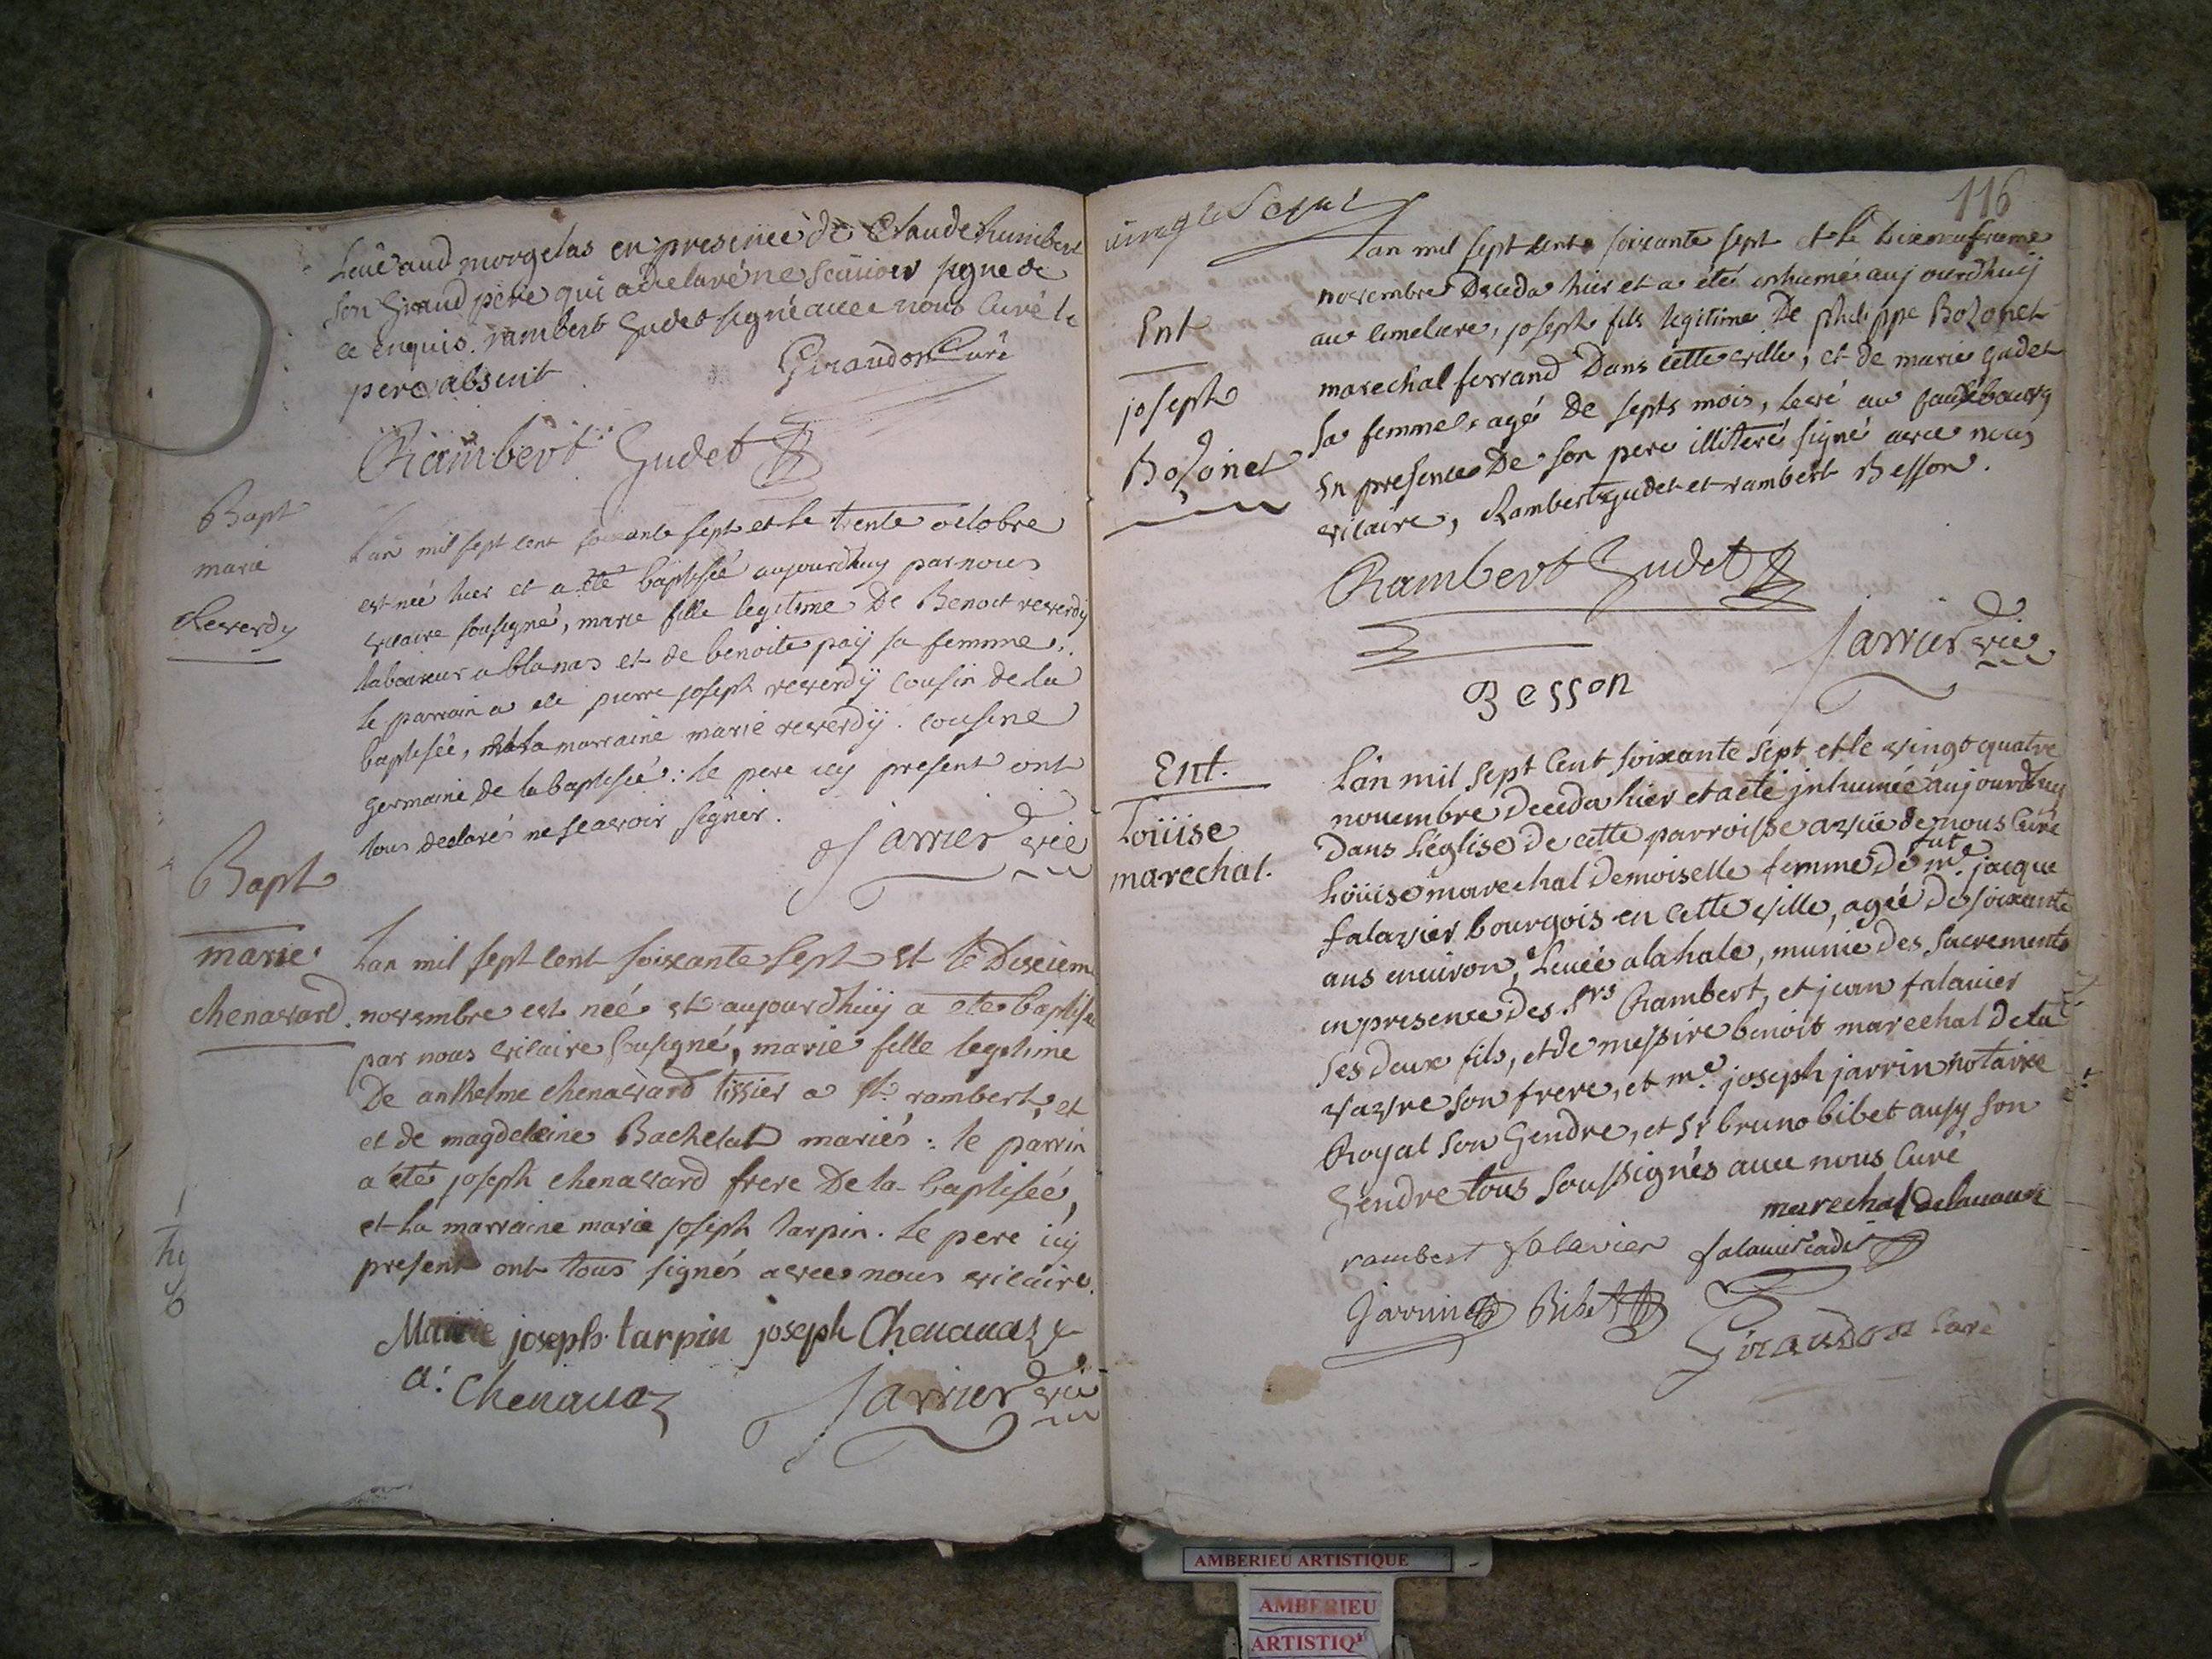 Levé aud morgelas en presence de Claude humbert
son Grand pere qui a declaré ne scauoir signe de
ce enquis. rambert Gudet signé auec nous Curé le
pere absent
Giraudon Curé
Rambert Gudet
Bapt
marie
Reverdy
L'an mil sept cent soixante sept et le trente octobre
est née hier et a été baptisée aujourdhuy par nous
vicaire sousigné, marie fille legitime De Benoit reverdÿ
laboureur a blanas et de benoite paÿ sa femme.
le parrain a été pierre joseph reverdÿ cousin de la
baptisée, la marraine marie reverdÿ cousine
germaine de la baptisée: le pere icy present ont
tous declarés ne scavoir signer.
Jarrier vic
Bapt
marie
chenavard
Lan mil sept cent soixante sept et le Dixiem
novembre est neé et aujourdhuÿ a ete baptisé
par nous vicaire sousigné, marie fille legitime
De anthelme chenavard tissier a st. rambert, et
et de magdeleine Bachelat mariés: le parrin
a été joseph chenavard frere De la baptiseé,
et la marraine marie joseph tarpin. Le pere icy
present ont tous signés avec nous vicaire.
Marie joseph tarpin joseph Chenauaz
a: Chenauaz
Jarrier vic
116
Ent
joseph
Bozonet
Lan mil sept cent soixante sept et le Dixneufieme
novembre Deceda hier et a eté inhumé aujourdhuÿ
au cimetiere, joseph fils legitime De philippe Bozonet
marechal ferrand Dans cette ville, et de marie gudet
sa femme agé De septs mois, levé au fauxbourg
En presence De son pere illiteré signé avec nous
vicaire, Rambert gudet et rambert Besson.
Rambert Gudet
Jarrier vic
Besson
Ent.
Loüise
marechal.
L'an mil sept Cent soixante sept et le vingt quatre
nouembre deceda hier et a eté jnhumée aujourdhuy
Dans L'eglise de cette parroisse de nous Curé
Loüise marechal demoiselle femme de fut me. jacque
falavier bourgois en cette ville, ageé de soixante
ans enuiron, Leuée a la hale, munie des sacrements
en presence des srs Rambert, et jean falauier
ses deux fils, et de messire benoit marechal de la
vavre son frere, et me. joseph jarrin notaire
Royal son Gendre, et sr bruno bibet ausy son
Gendre tous soussignés auec nous Curé
marechal delauaure
rambert falavier falauier cadet
jarrin Bibet
Giraudon Curé
AMBERIEU ARTISTIQUE
AMBERIEU
ARTISTIQ